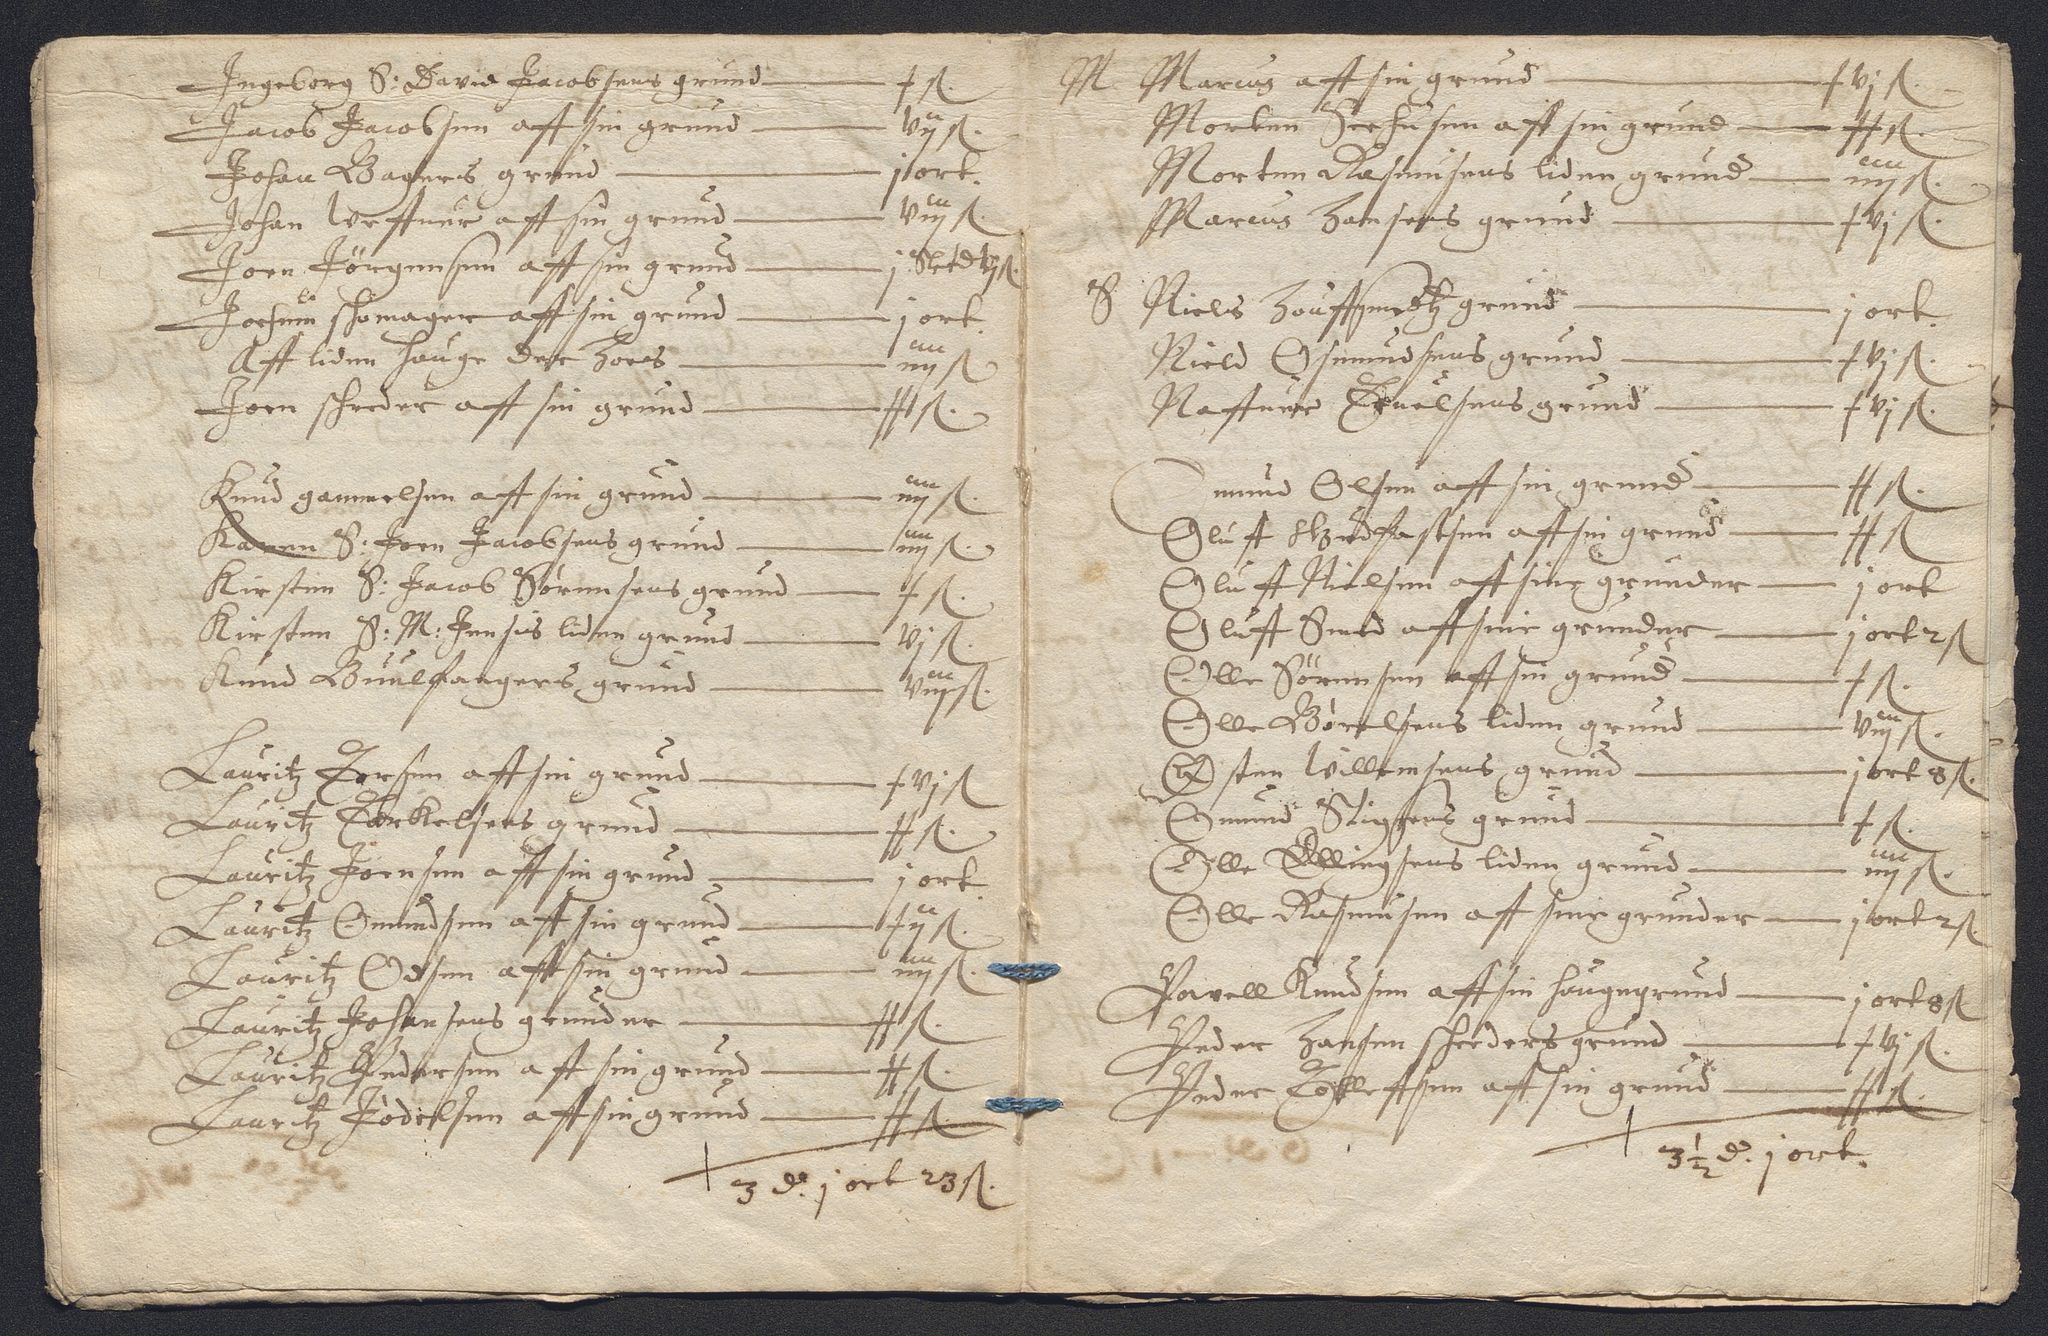 Ingeborg S: David Jacobsens grund — x ß.
Jacob Jacobsen aff sin grund — vij ß.
Johan Bagers grund — j ort.
Johan aff sin grund — viij ß.
Joen Jörgensen aff sin grund — j Sletd vj ß.
Jochum schomager aff sin grund — j ort.
Aff liden hauge der hoes — iiij ß
Joen schreder aff sin grund — ß.
Knud gammelsen aff sin grund — iiij ß.
Karen S: Joen Jacobsens grund — iiij ß.
Kirsten S: Jacob Sörensens grund — x ß.
Kirsten S: M: Jensis liden grund — vj ß.
Knud grund — viij ß.
Lauritz Iversen aff sin grund — xvj ß
Lauritz Torkelsens grund — xx ß.
Lauritz Joensen aff sin grund — j ort.
Lauritz Omundsen aff sin grund — xij ß.
Lauritz Odsen aff sin grund — iiij ß.
Lauritz Johansens grunder — xx ß.
Lauritz Pedersen aff sin grund — xx ß.
Lauritz aff sin grund — xx ß.
3 d. j ort 23 ß.
M Marcus aff sin grund — xvj ß.
Morten Seehusen aff sin grund — xx ß.
Morten Rasmusens liden grund — iiij ß.
Marcus Hansens grund — xvj ß.
Niels grund — j ort.
Nield Osmundsens grund — xvj ß.
grund — xvj ß.
mund Olsen aff sin grund — xx ß.
Oluff aff sin grund — xx ß
Oluff Nielsen aff sine grunder — j ort
Oluff Smed aff sine grunder — j ort 2 ß
Olle Sörensen aff sin grund — x ß.
Olle liden grund — viij ß.
Østen Willemsens grund — j ort 8 ß.
Omund Stigers grund — x ß.
Olle Ellingsens liden grund — iiij ß.
Olle Rasmusen aff sine grunder — j ort 2 ß.
Povell Knudsen aff sin haugegrund — j ort 8 ß
Peder Hansen schreders grund — xvj ß.
Peder Tolleffsen aff sin grund — xx ß.
3 1/2 d. j ort.